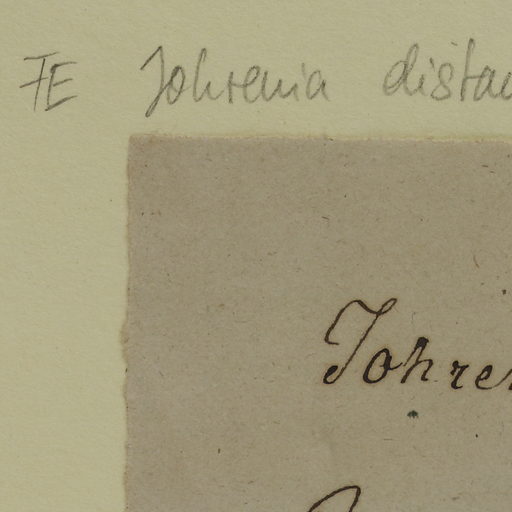 FE Johrenia distan
Johren